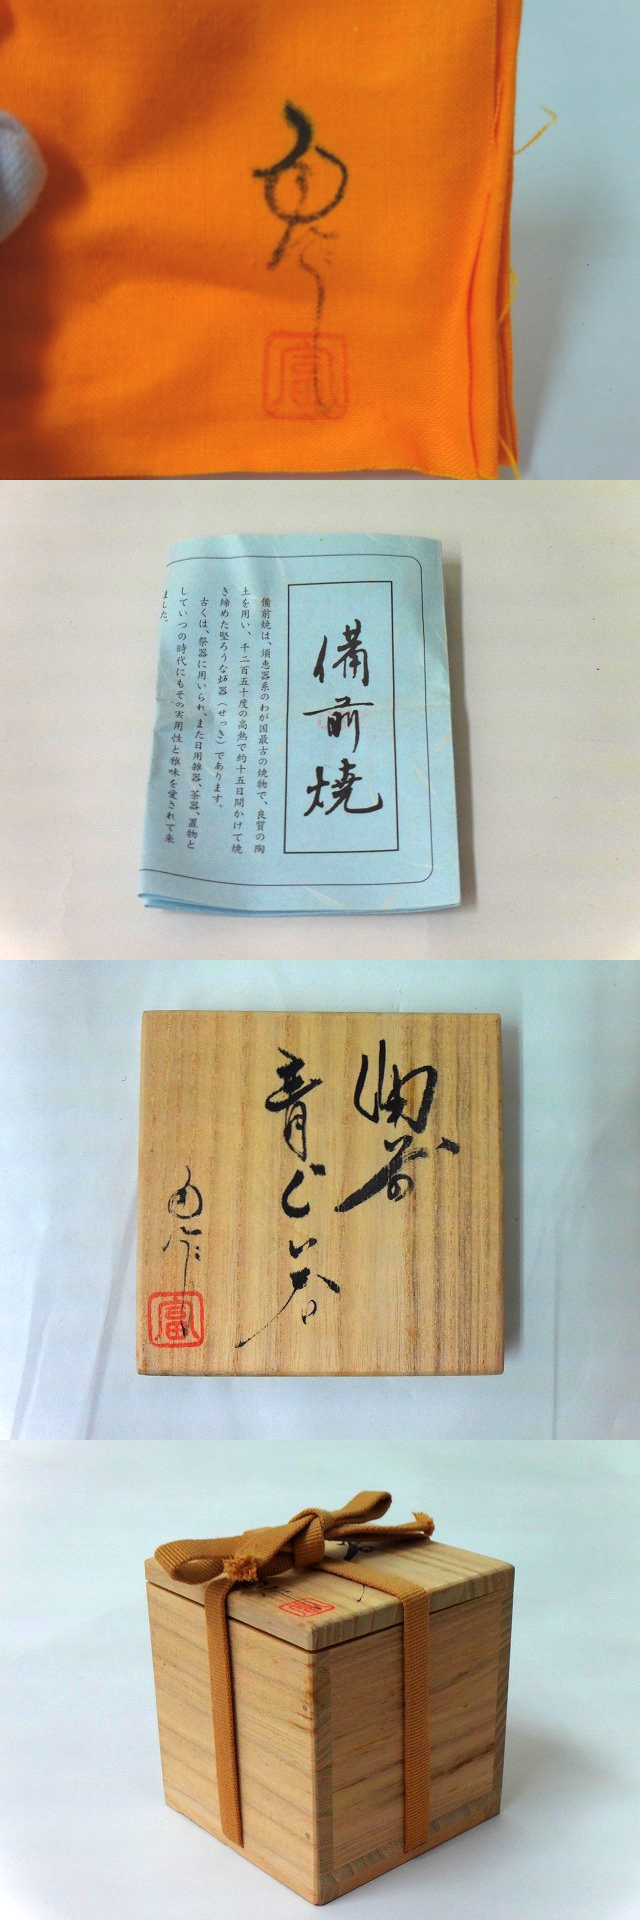 富
備前焼
備前焼は、須恵器系のわが国最古の焼物で、良質の陶
土を用い、千二百五十度の高熱で約十五日間かけて焼
き締めた堅ろうな炻器（せっき）であります。
古くは、祭器に用いられ、また日用雑器、茶器、置物と
していつの時代にもその実用性と雅味を愛されて来
ました。
備前
青ぐい呑
作
富